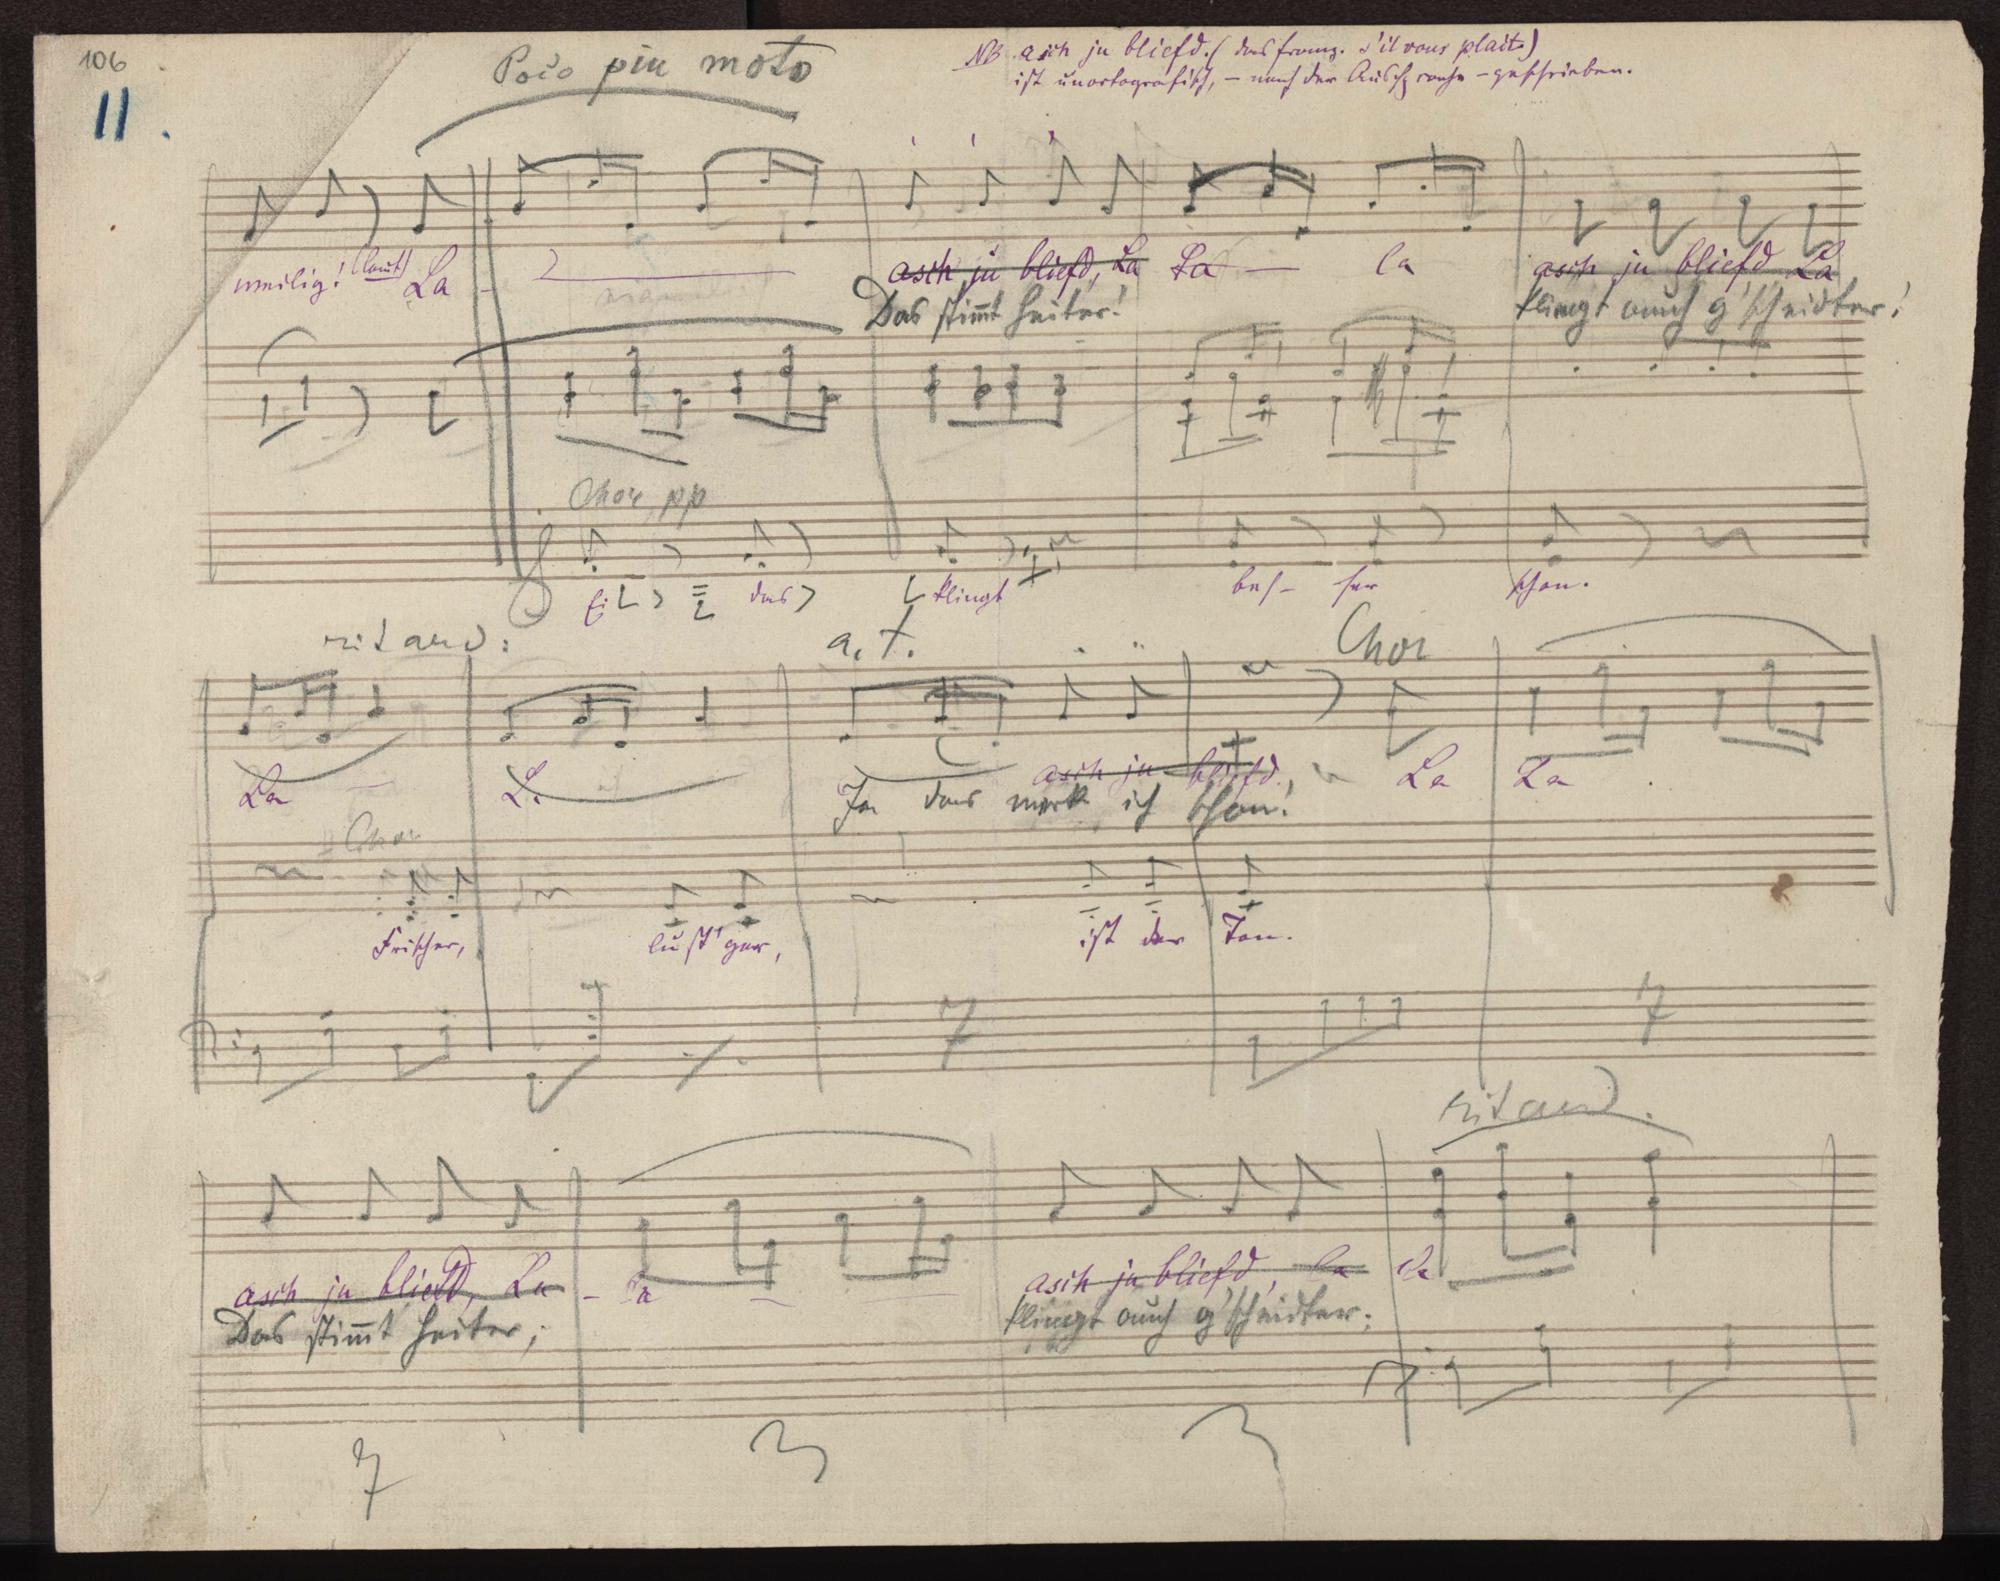 106
11.
Poco piu moto
NB asch ju bliefd. (das franz. s'il vous plait.)
ist unortografisch, – nach der Aussprache – geschrieben.
weilig! (laut) La - asch ju bliefd, La La — la asch ju bliefd La
Das stimmt heiter! klingt auch g'scheidter!
Chor, pp
Ei das klingt bes- ser schon.
ritard: a. t. Chor
La L. asch ju bliefd, La La
Ja das merk ich schon!
Chor
Frischer, lust'ger, ist der Ton.
ritard.
asch ju bliefd, La - La asch ju bliefd, la la
Das stimmt heiter, klingt auch g'scheidter;